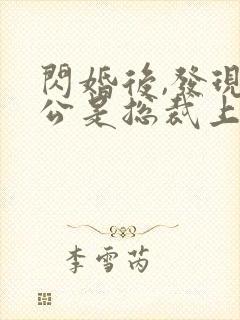 閃婚後,發現
公是總裁上
李雪芮